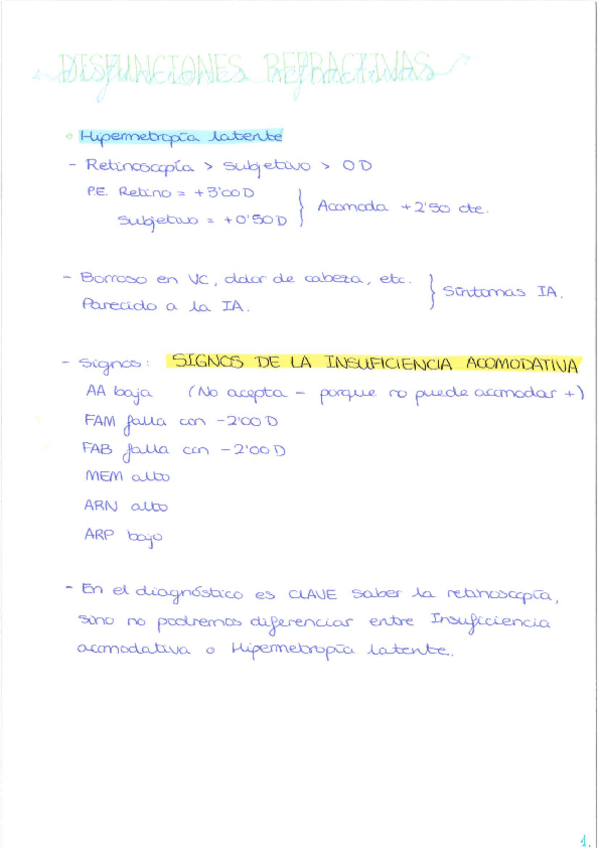 DISFUNCIONES REFRACTIVAS
Hipermetropía latente
- Retinoscopía > subjetivo > 0D
PE. Retino = +3'00D
subjetivo = +0'50D } Acomoda +2'50 cte.
- Borroso en VC, dolor de cabeza, etc.
Parecido a la IA. } Síntomas IA.
- Signos: SIGNOS DE LA INSUFICIENCIA ACOMODATIVA
AA baja (No acepta - porque no puede acomodar +)
FAM falla con -2'00D
FAB falla con -2'00D
MEM alto
ARN alto
ARP bajo
- En el diagnóstico es CLAVE saber la retinoscopía,
sino no podremos diferenciar entre Insuficiencia
acomodativa o Hipermetropía latente.
1.